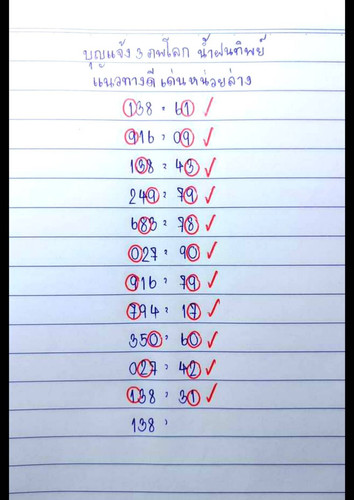 บุญแจ้ง 3 ภพโลก น้ำฝนทิพย์
แนวทางดีเด่นหน่วยล่าง
138 = 61 ✓
916 = 09 ✓
138 = 43 ✓
249 = 79 ✓
683 = 78 ✓
027 = 90 ✓
916 = 79 ✓
794 = 17 ✓
350 = 60 ✓
027 = 42 ✓
138 = 31 ✓
138 =